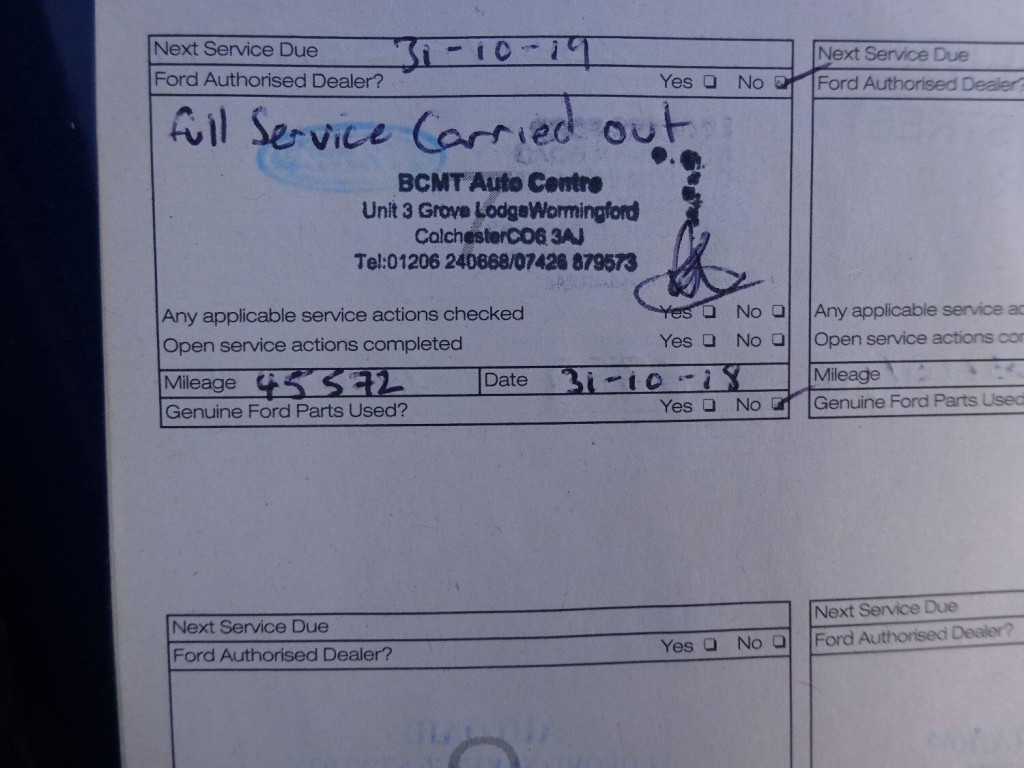 Next Service Due 31-10-19
Ford Authorised Dealer? Yes No
Full Service Carried out
BCMT Auto Centre
Unit 3 Grove LodgeWormingford
ColchesterCO6 3AJ
Tel:01206 240668/07426 879573
Any applicable service actions checked Yes No
Open service actions completed Yes No
Mileage 45572 Date 31-10-18
Genuine Ford Parts Used? Yes No
Next Service Due
Ford Authorised Dealer?
Any applicable service ac
Open service actions com
Mileage
Genuine Ford Parts Used
Next Service Due
Ford Authorised Dealer? Yes No
Next Service Due
Ford Authorised Dealer?